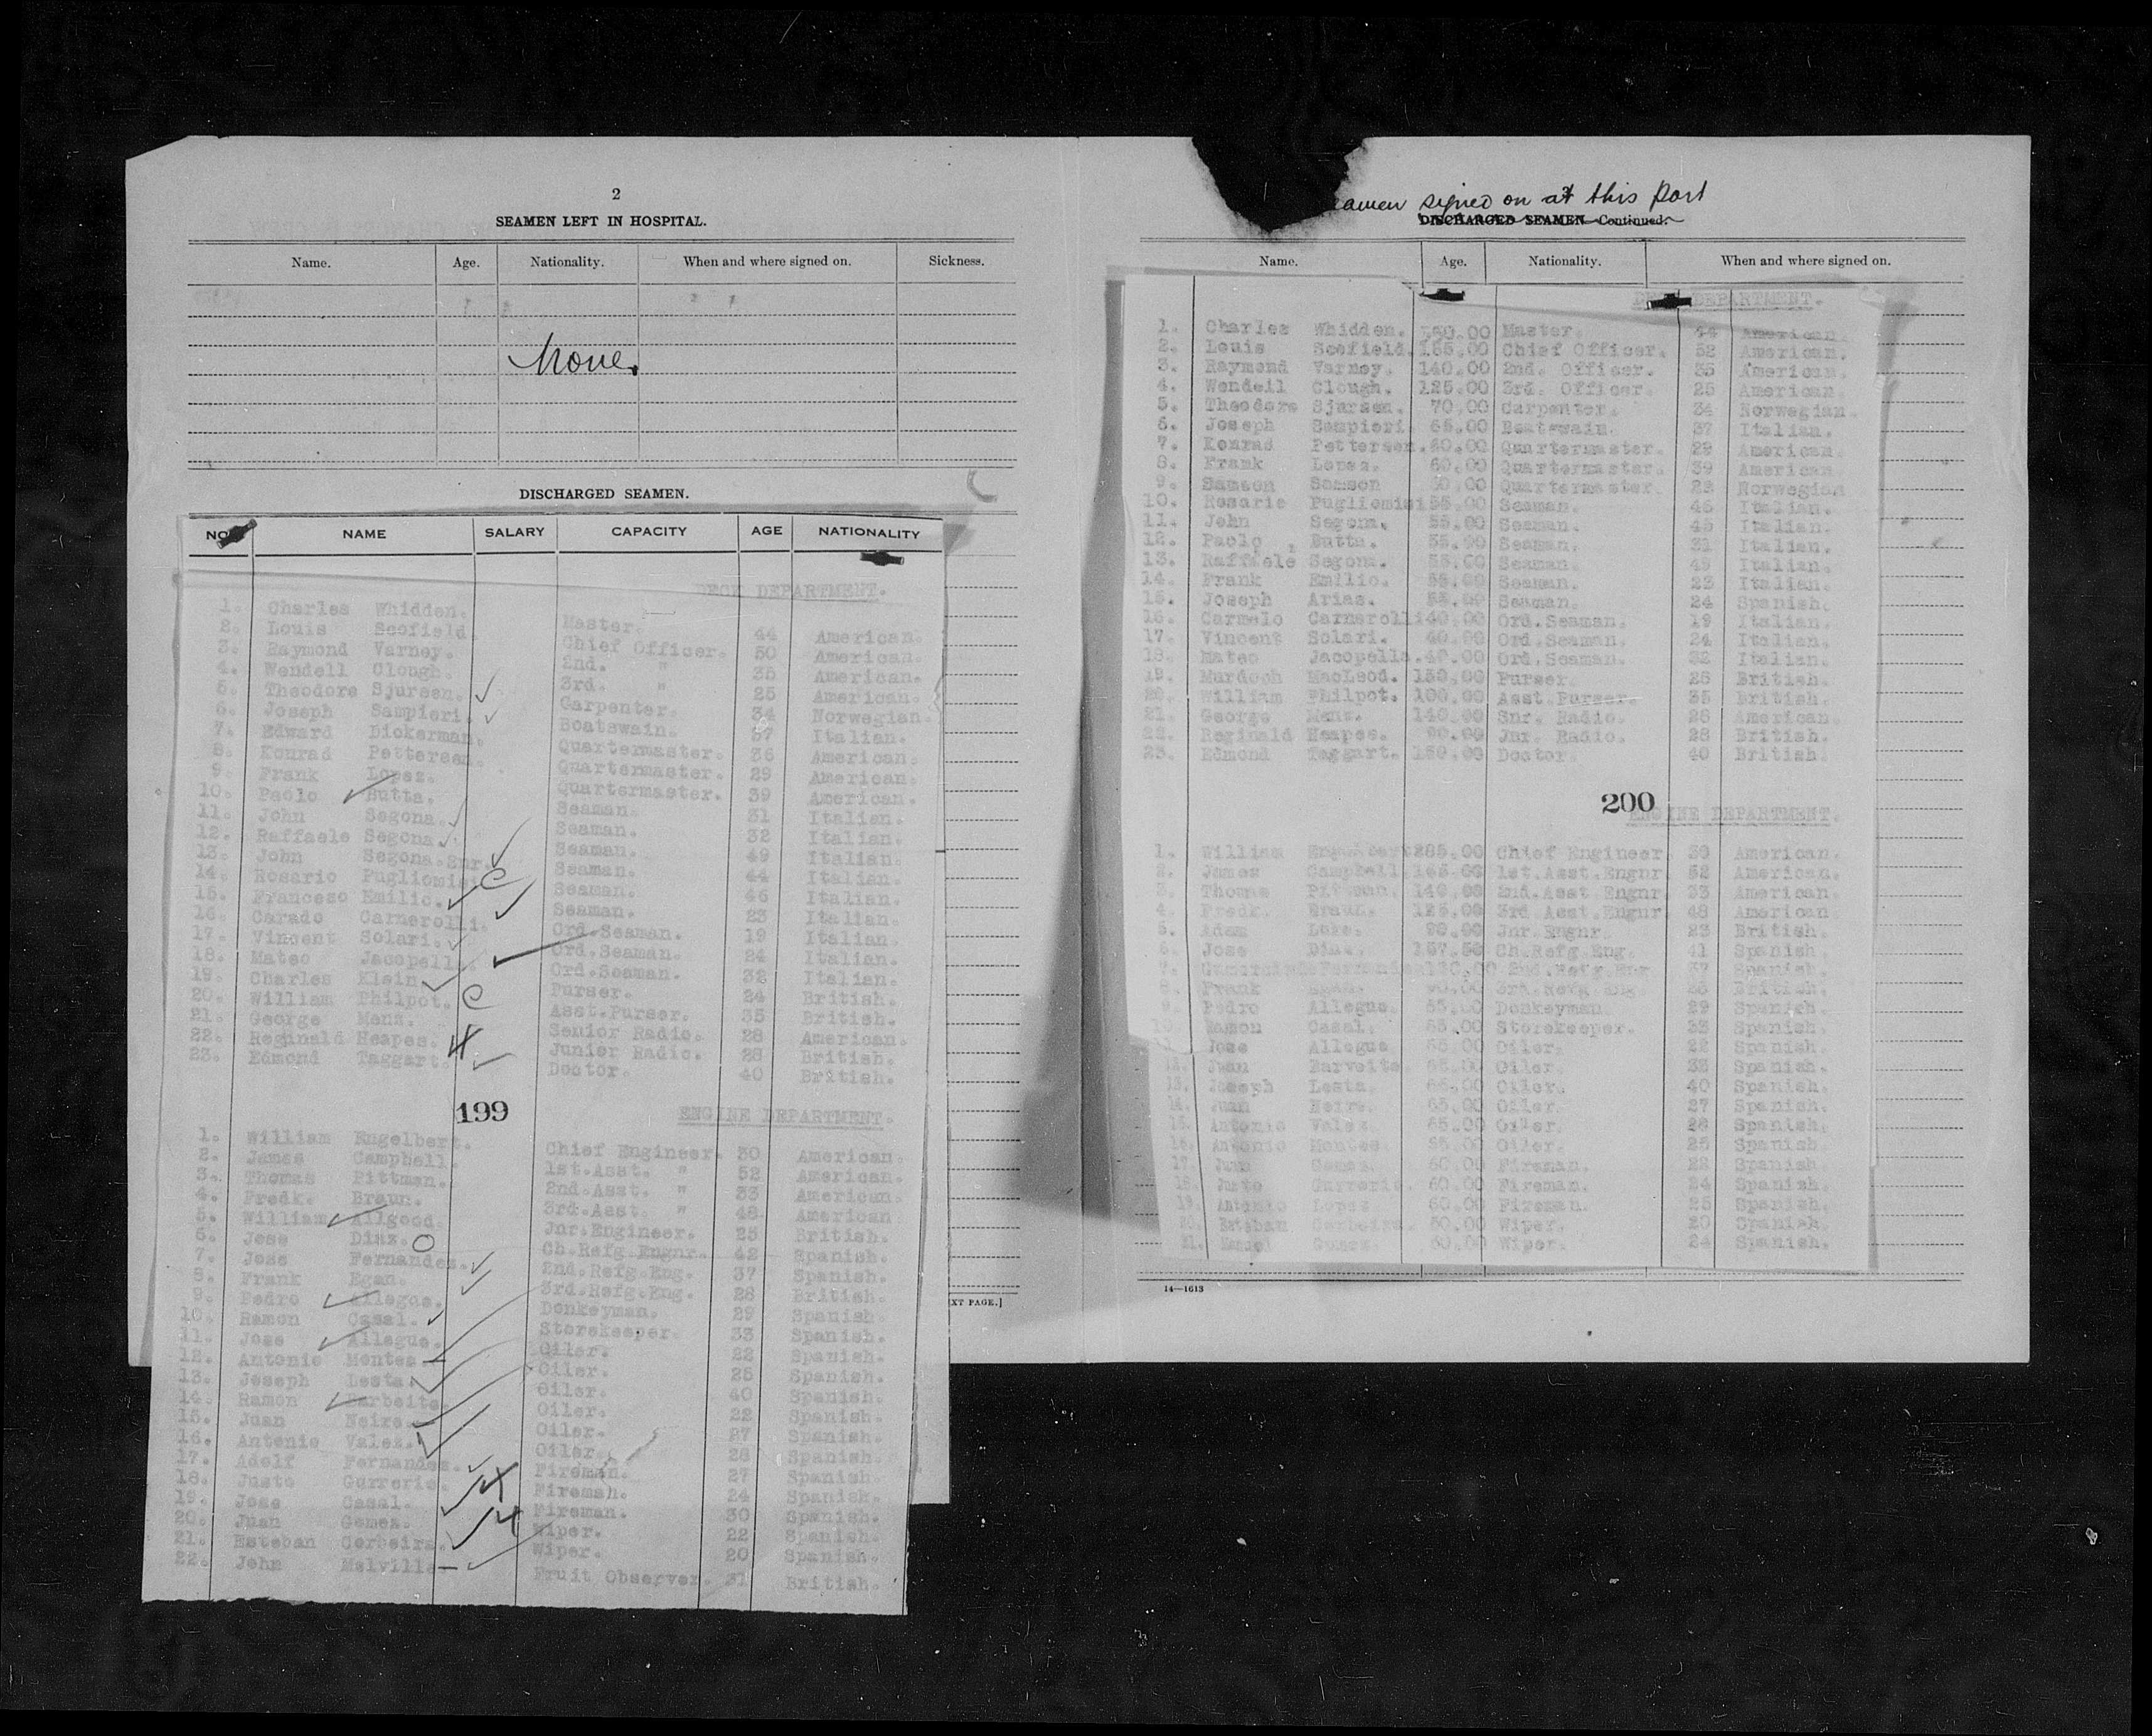 2
SEAMEN LEFT IN HOSPITAL.
Name. Age. Nationality. When and where signed on. Sickness.
None.
DISCHARGED SEAMEN.
NO NAME SALARY CAPACITY AGE NATIONALITY
DECK DEPARTMENT.
1. Charles Whidden. Master. 44 American.
2. Louis Scofield. Chief Officer. 50 American.
3. Raymond Varney. 2nd. " 35 American.
4. Wendell Clough. 3rd. " 25 American.
5. Theodore Sjursen. Carpenter. 34 Norwegian.
6. Joseph Sampieri. Boatswain. 37 Italian.
7. Edward Dickerman. Quartermaster. 36 American.
8. Konrad Pettersen. Quartermaster. 29 American.
9. Frank Lopez. Quartermaster. 39 American.
10. Paolo Butta. Seaman. 31 Italian.
11. John Segona. Seaman. 32 Italian.
12. Raffaele Segona. Seaman. 49 Italian.
13. John Segona.Snr. Seaman. 44 Italian.
14. Rosario Pugliomisi Seaman. 46 Italian.
15. Francezo Emilio. Seaman. 23 Italian.
16. Carado Carnerolli. Ord.Seaman. 19 Italian.
17. Vincent Solari. Ord.Seaman. 24 Italian.
18. Mateo Jacopell Ord.Seaman. 32 Italian.
19. Charles Klein Purser. 24 British.
20. William Philpot. Asst.Purser. 35 British.
21. George Menz. Senior Radio. 28 American.
22. Reginald Heapes. Junior Radio. 28 British.
23. Edmond Taggart. Doctor. 40 British.
199
ENGINE DEPARTMENT.
1. William Engelbert. Chief Engineer. 30 American.
2. James Campbell. 1st.Asst. " 52 American.
3. Thomas Pittman. 2nd.Asst. " 33 American.
4. Fredk. Braun. 3rd.Asst. " 48 American
5. William Allgood. Jnr.Engineer. 25 British.
6. Jose Diaz. Ch.Refg.Engnr. 42 Spanish.
7. Jose Fernandez. 2nd.Refg.Eng. 37 Spanish.
8. Frank Egan. 3rd.Refg.Eng. 28 British.
9. Pedro Allegue. Donkeyman. 29 Spanish.
10. Ramon Casal. Storekeeper. 33 Spanish.
11. Jose Allegue. Oiler. 22 Spanish.
12. Antonio Montes Oiler. 25 Spanish.
13. Joseph Lesta. Oiler. 40 Spanish.
14. Ramon Barbeito Oiler. 22 Spanish.
15. Juan Neira Oiler. 27 Spanish.
16. Antonio Valez. Oiler. 28 Spanish.
17. Adolf Fernandez. Fireman. 27 Spanish.
18. Justo Gurreric. Fireman. 24 Spanish.
19. Jose Casal. Fireman. 30 Spanish.
20. Juan Gomez. Wiper. 22 Spanish.
21. Esteban Corbeira. Wiper. 20 Spanish.
22. John Melville Fruit Observer. 31 British.
XT PAGE.]
eamen signed on at this port
DISCHARGED SEAMEN—Continued.
Name. Age. Nationality. When and where signed on.
DEPARTMENT.
1. Charles Whidden. Master. 44 American.
2. Louis Scofield. 165.00 Chief Officer. 52 American.
3. Raymond Varney. 140.00 2nd. Officer. 35 American.
4. Wendell Clough. 125.00 3rd. Officer. 25 American.
5. Theodore Sjursen. 70.00 Carpenter. 34 Norwegian.
6. Joseph Sampieri. 65.00 Boatswain. 37 Italian.
7. Konrad Pettersen. 60.00 Quartermaster. 29 American.
8. Frank Lopez. 60.00 Quartermaster. 39 American.
9. Samson Samson 60.00 Quartermaster. 23 Norwegian
10. Rosario Pugliomisi 55.00 Seaman. 46 Italian.
11. John Segona. 55.00 Seaman. 45 Italian.
12. Paolo Butta. 55.00 Seaman. 31 Italian.
13. Raffaele Segona. 55.00 Seaman. 49 Italian.
14. Frank Emilio. 55.00 Seaman. 23 Italian.
15. Joseph Arias. 55.00 Seaman. 24 Spanish.
16. Carmelo Carnerolli 40.00 Ord.Seaman. 19 Italian.
17. Vincent Solari. 40.00 Ord.Seaman. 24 Italian.
18. Mateo Jacopello. 40.00 Ord.Seaman. 32 Italian.
19. Murdoch MacLeod. 150.00 Purser. 26 British.
20. William Philpot. 100.00 Asst.Purser. 35 British.
21. George Menz. 140.00 Snr. Radio. 26 American.
22. Reginald Heapes. 90.00 Jnr. Radio. 28 British.
23. Edmond Taggart. 150.00 Doctor. 40 British.
200
ENGINE DEPARTMENT.
1. William 285.00 Chief Engineer. 30 American.
2. James Campbell. 165.00 1st.Asst.Engnr. 52 American.
3. Thomas Pittman. 140.00 2nd.Asst Engnr. 33 American.
4. Fredk. Braun. 125.00 3rd Asst.Engnr. 48 American
5. Adam Luke. 90.00 Jnr.Engnr. 23 British.
6. Jose Diaz. 157.50 Ch.Refg.Eng. 41 Spanish.
7. 130.00 2nd.Refg.Eng 37 Spanish.
8. Frank Egan. 90.00 3rd.Refg.Eng. 28 British.
9. Pedro Allegue. 65.00 Donkeyman. 29 Spanish.
Ramon Casal. 65.00 Storekeeper. 33 Spanish.
Jose Allegue 65.00 Oiler. 22 Spanish.
12. Juan Barveito. 65.00 Oiler. 32 Spanish.
13. Joseph Lesta. 65.00 Oiler. 40 Spanish.
14. Juan Neira. 65.00 Oiler. 27 Spanish.
15. Antonio Valez. 65.00 Oiler. 28 Spanish.
16. Antonio Montes. 65.00 Oiler. 25 Spanish.
17. Juan Gomez. 60.00 Fireman. 22 Spanish.
18. Justo Gurreric. 60.00 Fireman. 24 Spanish.
19. Antonio Lopez 60.00 Fireman. 25 Spanish.
20. Esteban Corbeira. 60.00 Wiper. 20 Spanish.
21. Manuel Gomez. 60.00 Wiper. 24 Spanish.
14—1613